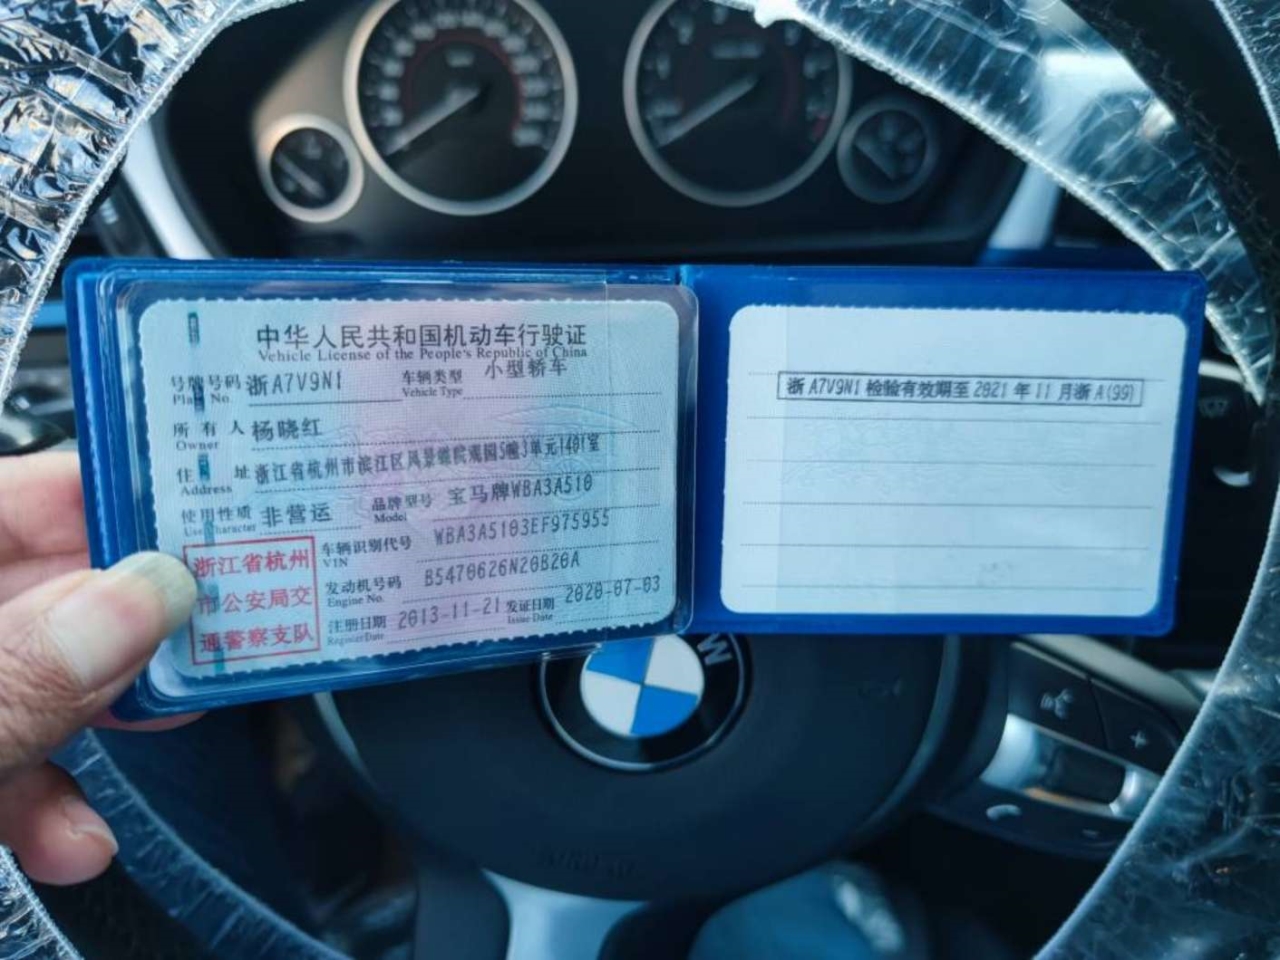 中华人民共和国机动车行驶证
Vehicle License of the People's Republic of China
号牌号码 浙A7V9N1 车辆类型 小型轿车
Plate No. Vehicle Type
所有人 杨晓红
Owner
住址 浙江省杭州市滨江区风景蝶院观园5幢3单元1401室
Address
使用性质 非营运 品牌型号 宝马牌WBA3A510
Use Character Model
浙江省杭州
市公安局交
通警察支队
车辆识别代号 WBA3A5103EF975955
VIN
发动机号码 B5470626N20B20A
Engine No.
注册日期 2013-11-21 发证日期 2020-07-03
Register Date Issue Date
浙A7V9N1 检验有效期至 2021年11月浙A(99)
M